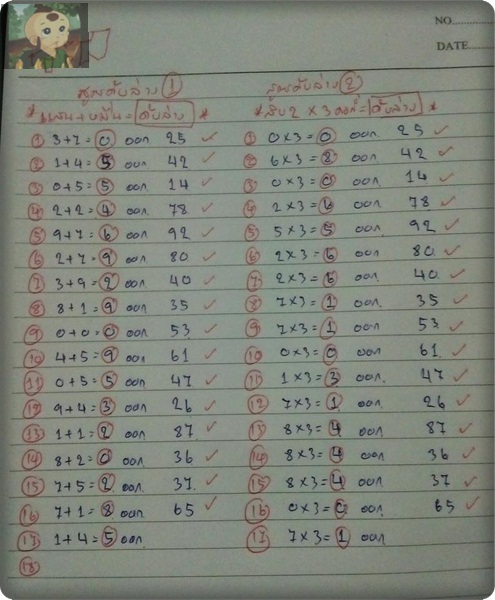 NO.
DATE
สูตรดับล่าง 1
* แสน+หมื่น = ดับล่าง *
1 3+7=0 ออก 25 ✓
2 1+4=5 ออก 42 ✓
3 0+5=5 ออก 14 ✓
4 2+2=4 ออก 78 ✓
5 9+7=6 ออก 92 ✓
6 2+7=9 ออก 80 ✓
7 3+9=2 ออก 40 ✓
8 8+1=9 ออก 35 ✓
9 0+0=0 ออก 53 ✓
10 4+5=9 ออก 61 ✓
11 0+5=5 ออก 47 ✓
12 9+4=3 ออก 26 ✓
13 1+1=2 ออก 87 ✓
14 8+2=0 ออก 36 ✓
15 7+5=2 ออก 37 ✓
16 7+1=8 ออก 65 ✓
17 1+4=5 ออก
18
สูตรดับล่าง 2
* สิบ2 × 3 = ดับล่าง *
1 0×3=0 ออก 25 ✓
2 6×3=8 ออก 42 ✓
3 0×3=0 ออก 14 ✓
4 2×3=6 ออก 78 ✓
5 5×3=5 ออก 92 ✓
6 2×3=6 ออก 80 ✓
7 2×3=6 ออก 40 ✓
8 7×3=1 ออก 35 ✓
9 7×3=1 ออก 53 ✓
10 0×3=0 ออก 61 ✓
11 1×3=3 ออก 47 ✓
12 7×3=1 ออก 26 ✓
13 8×3=4 ออก 87 ✓
14 8×3=4 ออก 36 ✓
15 8×3=4 ออก 37 ✓
16 0×3=0 ออก 65 ✓
17 7×3=1 ออก